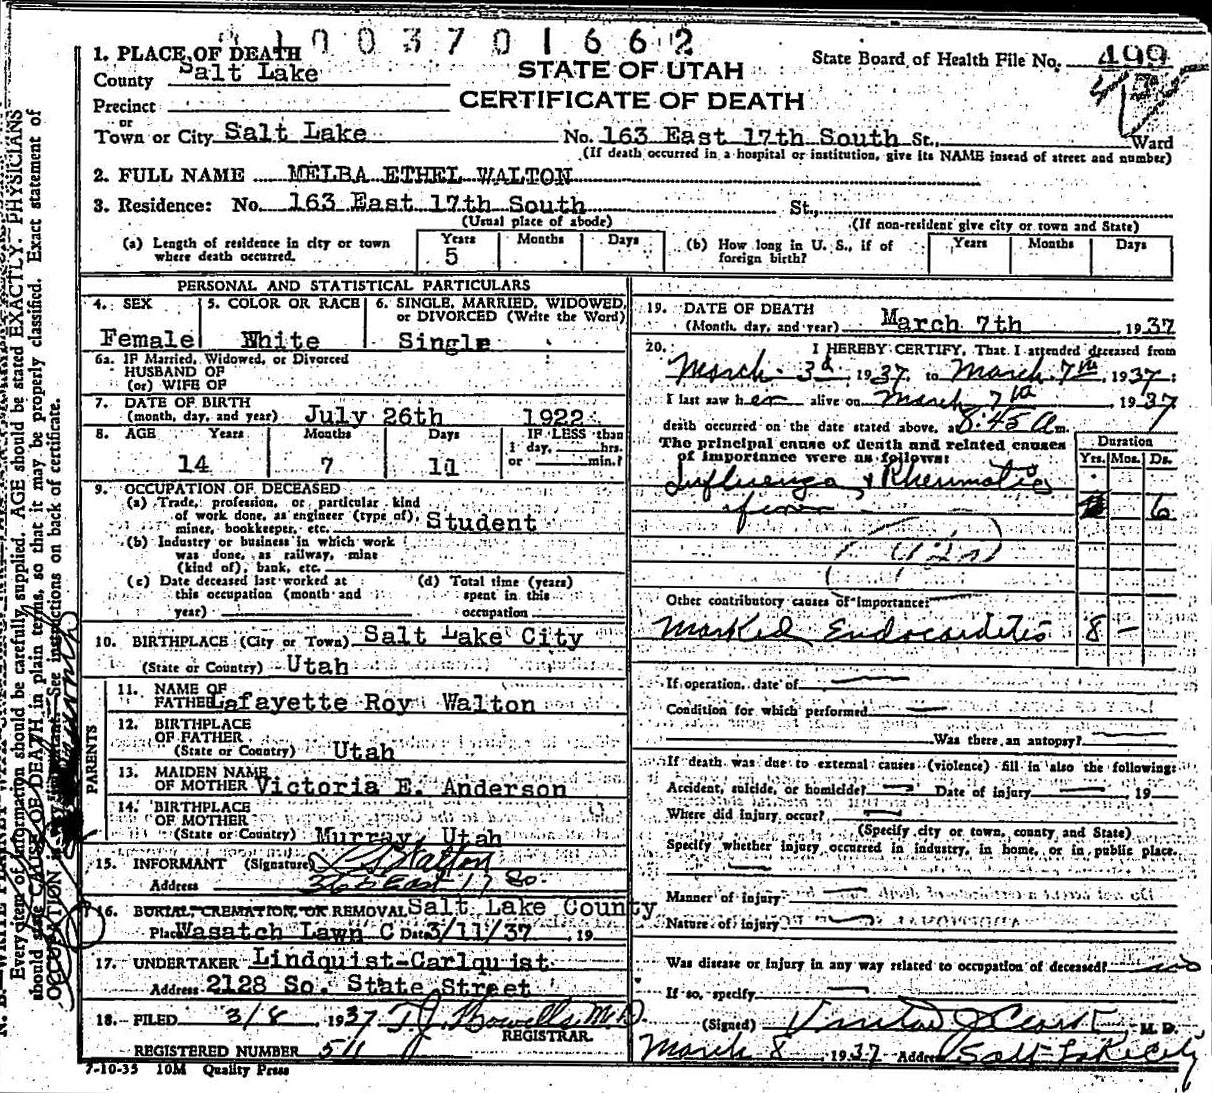 1003701662
1. PLACE OF DEATH
County Salt Lake
STATE OF UTAH
State Board of Health File No. 499
CERTIFICATE OF DEATH
Precinct
or
Town or City Salt Lake No. 163 East 17th South St., Ward
(If death occurred in a hospital or institution, give its NAME insead of street and number)
2. FULL NAME MELBA ETHEL WALTON
3. Residence: No. 163 East 17th South St.,
(Usual place of abode) (If non-resident give city or town and State)
(a) Length of residence in city or town where death occurred. Years 5 Months Days
(b) How long in U. S., if of foreign birth? Years Months Days
PERSONAL AND STATISTICAL PARTICULARS
4. SEX 5. COLOR OR RACE 6. SINGLE, MARRIED, WIDOWED, or DIVORCED (Write the Word)
Female White Single
6a. IF Married, Widowed, or Divorced
HUSBAND OF
(or) WIFE OF
7. DATE OF BIRTH
(month, day, and year) July 26th 1922
8. AGE Years Months Days IF LESS than
1 day, hrs.
14 7 11 or min.?
9. OCCUPATION OF DECEASED
(a) Trade, profession, or particular kind
of work done, as engineer (type of),
miner, bookkeeper, etc. Student
(b) Industry or business in which work
was done, as railway, mine
(kind of), bank, etc.
(c) Date deceased last worked at this occupation (month and year)
(d) Total time (years) spent in this occupation
10. BIRTHPLACE (City or Town) Salt Lake City
(State or Country) Utah
PARENTS
11. NAME OF
FATHER Lafayette Roy Walton
12. BIRTHPLACE
OF FATHER
(State or Country) Utah
13. MAIDEN NAME
OF MOTHER Victoria E. Anderson
14. BIRTHPLACE
OF MOTHER
(State or Country) Murray, Utah
15. INFORMANT (Signature) Walton
Address East 17 So
16. BURIAL, CREMATION, OR REMOVAL Salt Lake County
Place Wasatch Lawn C Date 3/11/37, 19
17. UNDERTAKER Lindquist-Carlquist
Address 2128 So. State Street
18. FILED 3/8 1937 T.J. Howells M.D.
REGISTRAR.
REGISTERED NUMBER 511
7-10-35 10M Quality Press
19. DATE OF DEATH
(Month, day, and year) March 7th 1937
20. I HEREBY CERTIFY, That I attended deceased from
March 3d, 1937, to March 7th, 1937;
I last saw her alive on March 7th 1937
death occurred on the date stated above, at 8:45 a m.
The principal cause of death and related causes of importance were as follows:
Duration
Yrs. Mos. Ds.
Influenza & Rheumatic
fever 6
Other contributory causes of importance:
Marked Endocarditis 8 -
If operation, date of
Condition for which performed
Was there an autopsy?
If death was due to external causes (violence) fill in also the following:
Accident, suicide, or homicide? Date of injury 19
Where did injury occur?
(Specify city or town, county and State)
Specify whether injury occurred in industry, in home, or in public place.
Manner of injury
Nature of injury
Was disease or injury in any way related to occupation of deceased? no
If so, specify
(Signed) M. D.
March 8, 1937 Address Salt Lake City
Every item of information should be carefully supplied. AGE should be stated EXACTLY. PHYSICIANS
should state CAUSE OF DEATH in plain terms, so that it may be properly classified. Exact statement of
OCCUPATION See instructions on back of certificate.